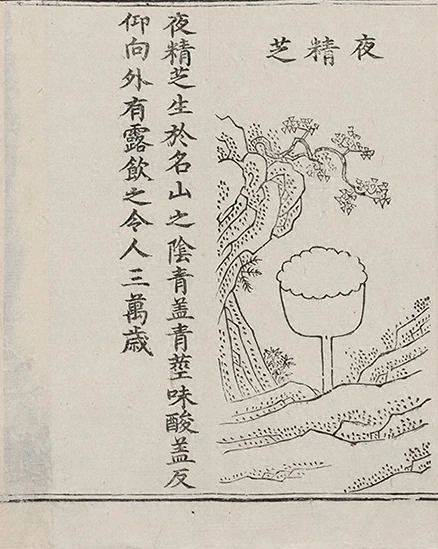 夜精芝
夜精芝生於名山之陰青盖青莖味酸盖反
仰向外有露飲之令人三萬歲